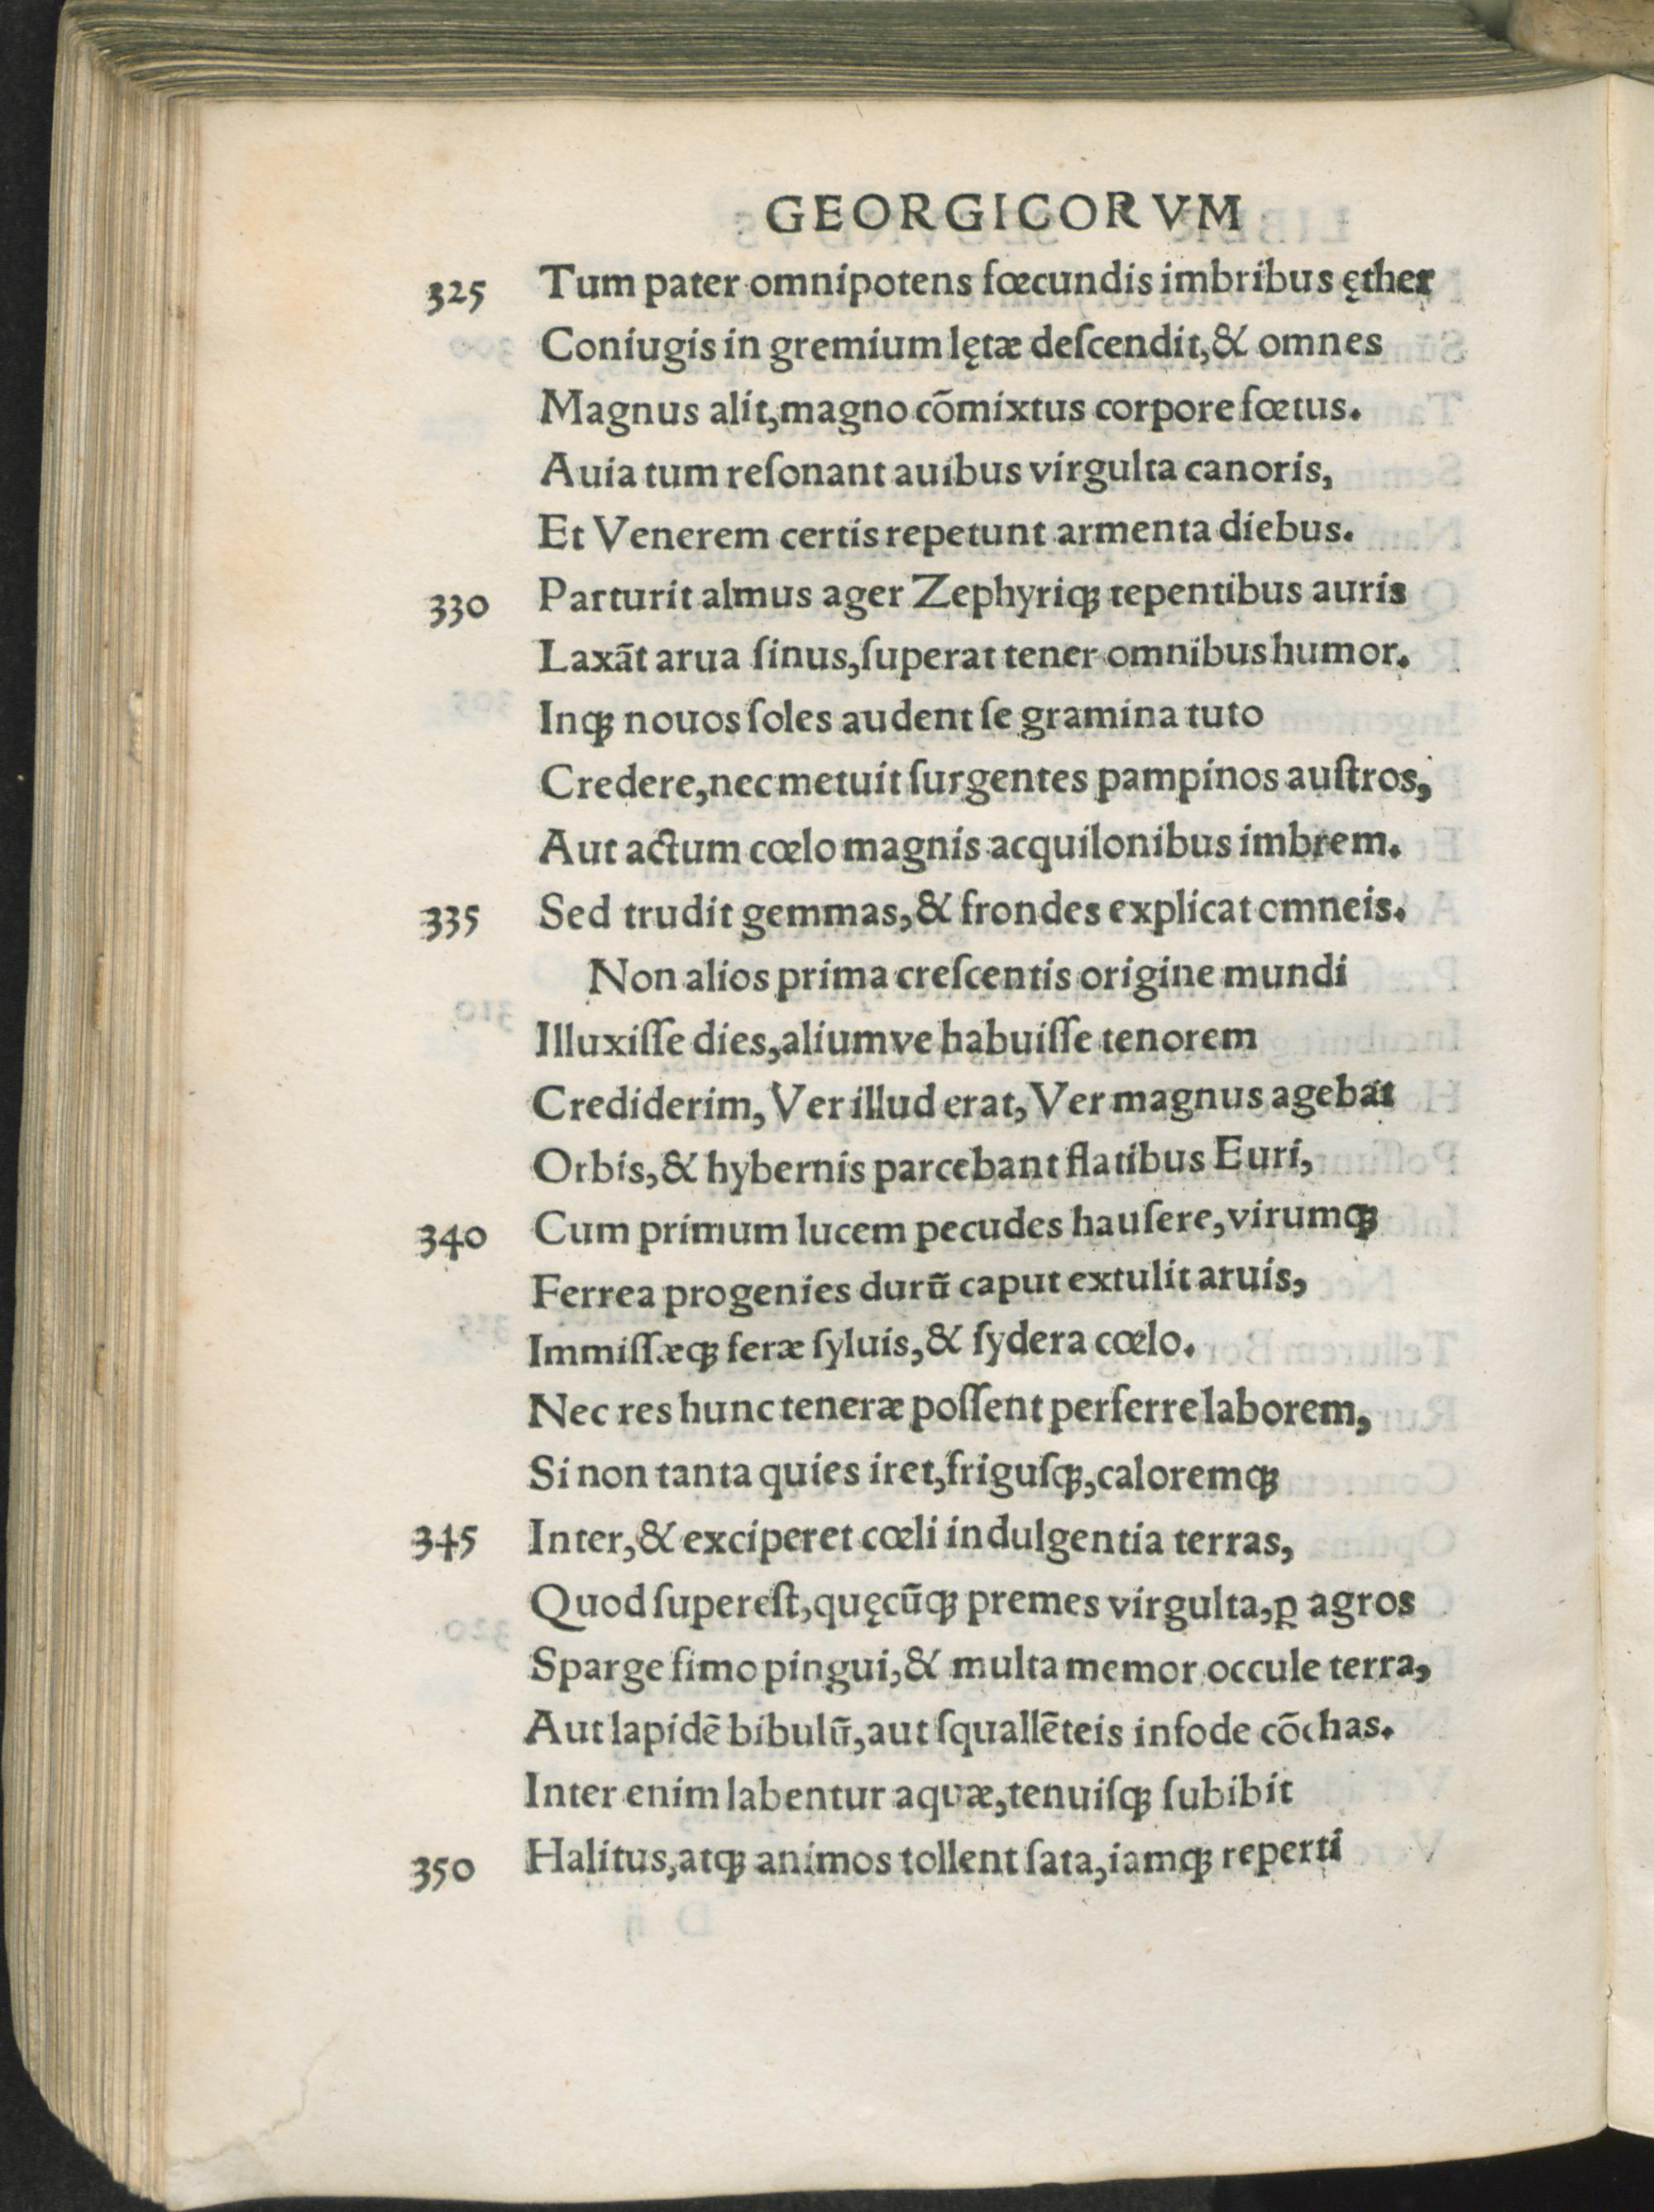 GEORGICORVM
325 Tum pater omnipotens fœcundis imbribus ęther
Coniugis in gremium lętæ deſcendit, & omnes
Magnus alit, magno cõmixtus corpore fœtus.
Auia tum reſonant auibus virgulta canoris,
Et Venerem certis repetunt armenta diebus.
330 Parturit almus ager Zephyriqꝫ tepentibus auris
Laxãt arua ſinus, ſuperat tener omnibus humor.
Inqꝫ nouos ſoles audent ſe gramina tuto
Credere, nec metuit ſurgentes pampinos auſtros,
Aut actum cœlo magnis acquilonibus imbrem.
335 Sed trudit gemmas, & frondes explicat omneis.
Non alios prima creſcentis origine mundi
Illuxiſſe dies, aliumve habuiſſe tenorem
Crediderim, Ver illud erat, Ver magnus agebat
Orbis, & hybernis parcebant flatibus Euri,
340 Cum primum lucem pecudes hauſere, virumqꝫ
Ferrea progenies durũ caput extulit aruis,
Immiſſæqꝫ feræ ſyluis, & ſydera cœlo.
Nec res hunc teneræ poſſent perferre laborem,
Si non tanta quies iret, friguſqꝫ, caloremqꝫ
345 Inter, & exciperet cœli indulgentia terras,
Quod ſupereſt, quęcũqꝫ premes virgulta, ꝑ agros
Sparge fimo pingui, & multa memor occule terra,
Aut lapidẽ bibulũ, aut ſquallẽteis infode cõchas.
Inter enim labentur aquæ, tenuiſqꝫ ſubibit
350 Halitus, atqꝫ animos tollent ſata, iamqꝫ reperti